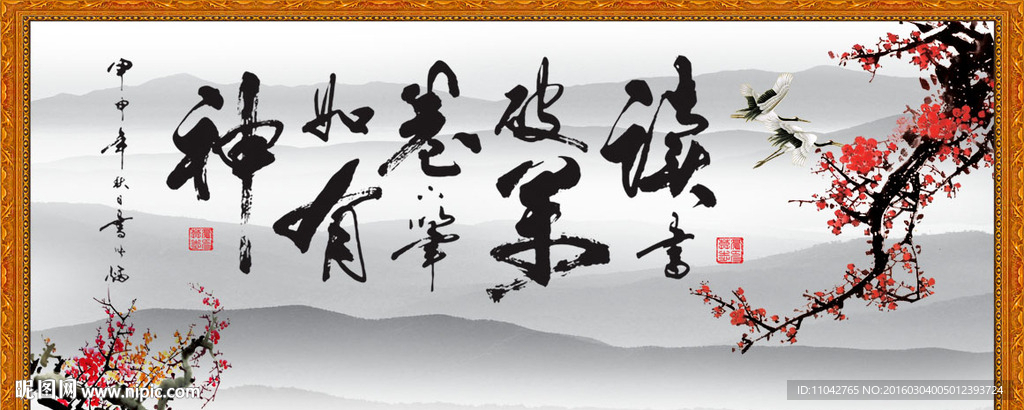 讀書
破萬
卷下筆
如有
神
甲申年秋日書
昵图网 www.nipic.com
ID:11042765 NO:20160304005012393724